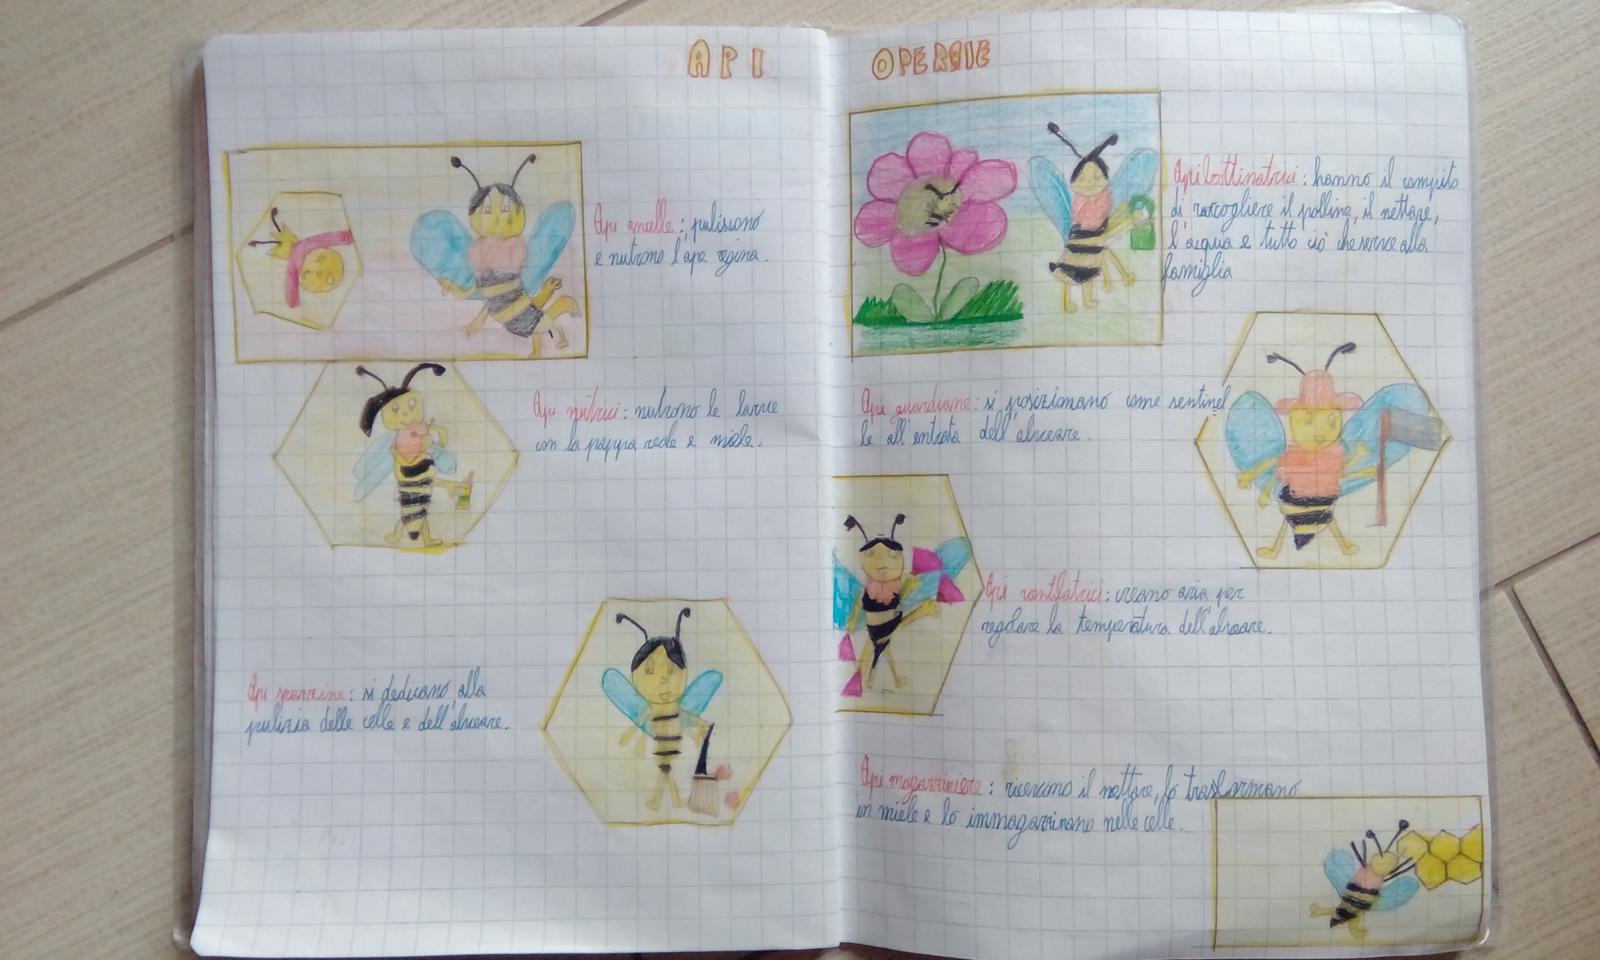 API OPERAIE
Api ancelle: puliscono
e nutrono l'ape regina.
Api nutrici: nutrono le larve
con la pappa reale e miele.
Api spazzine: si dedicano alla
pulizia delle celle e dell'alveare.
Api bottinatrici: hanno il compito
di raccogliere il polline, il nettare,
l'acqua e tutto ciò che serve alla
famiglia
Api guardiane: si posizionano come sentinel
le all'entrata dell'alveare.
Api ventilatrici: creano aria per
regolare la temperatura dell'alveare.
Api magazziniere: ricevono il nettare, lo trasformano
in miele e lo immagazzinano nelle celle.